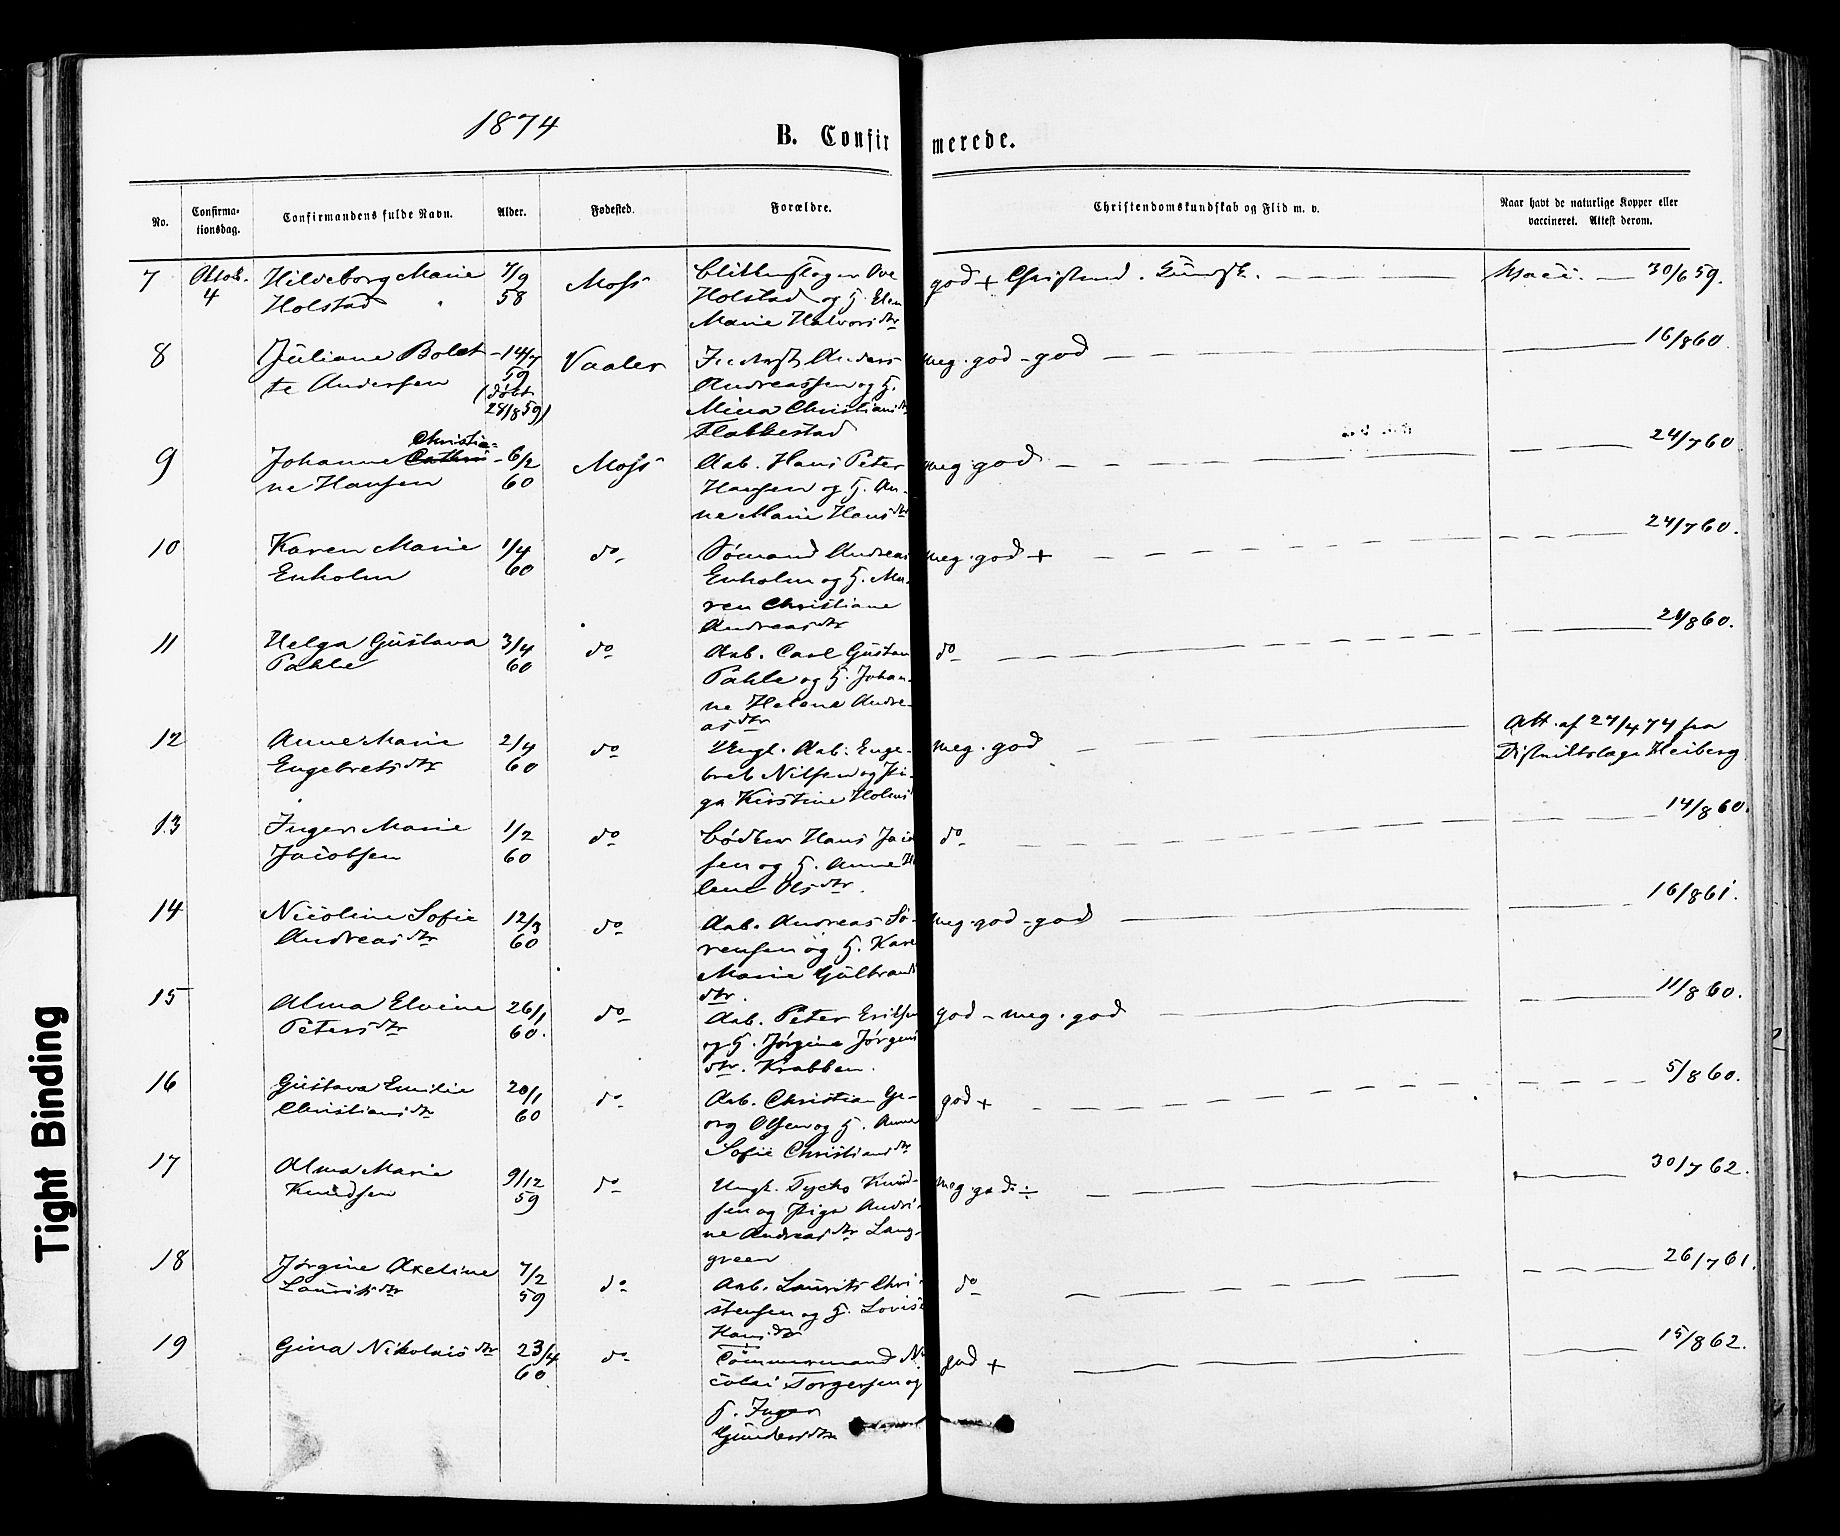 1874
B. Confirmerede.
No.
Confirma-
tionsdag.
Confirmandens fulde Navn.
Alder.
Fødested.
Forældre.
Christendomskundskab og Flid m. v.
Naar havt de naturlige Kopper eller
vaccineret. Attest derom.
7 Oktob. Hildeborg Marie 7/9 Moss Ove god + Christend. Kundsk. Vacc. 30/6 59.
4 Holstad 58 Holstad og H. Elen
Marie Halvorsdtr
8 Juliane Bolet- 14/7 Vaaler Anders meg. god - god 16/8 60.
te Andersen 59 Andreassen og H.
(døbt Mina Christiansdtr
28/8 59) Flakkestad
9 Johanne Christia- 6/2 Moss Arb. Hans Peter meg. god 24/7 60
ne Hansen 60 Hansen og H. An-
ne Marie Hansdtr
10 Karen Marie 1/4 do Sømand Andreas meg. god + 24/7 60.
Enholm 60 Enholm og H. Ma-
ren Christiane
Andreasdtr
11 Helga Gustava 3/4 do Arb. Carl Gustav do 24/8 60.
Pahle 60 Pahle og H. Johan-
ne Helene Andre-
asdtr
12 Anne Marie 2/4 do Ungk. Arb. Enge- meg. god Att. af 27/4 74 fra
Engebretsdtr 60 bret Nilsen og Pi- Distriktslæge Heiberg
ga Kirstine Holms
13 Inger Marie 1/2 do Bødker Hans Jacob do 14/8 60.
Jacobsen 60 sen og H. Anne He
lene Olsdtr.
14 Nicoline Sofie 12/3 do Arb. Andreas Sø- meg. god - god 16/8 61.
Andreasdtr 60 rensen og H. Karen
Marie Gulbrands
dtr.
15 Alma Elvine 26/1 do Arb. Peter Eriksen god - meg. god 11/8 60.
Petersdtr 60. og H. Jørgine Jørgens
dtr. Krabben.
16 Gustava Emilie 20/1 do Arb. Christian Ge- god + 5/8 60.
Christiansdtr 60 org Olsen og H. Anne
Sofie Christiansdtr
17 Alma Marie 9/12 do Ungk. Tycho Knud- meg. god ÷ 30/7 62.
Knudsen 59 sen og Pige Andri-
ne Andreasdtr Lang-
green
18 Jørgine Axeline 7/2 do Arb. Laurits Chri- do 26/7 61.
Lauritsdtr 59 stensen og H. Lovise
Hansdtr
19 Gina Nikolaisdtr 23/4 do Tømmermand Ni god + 15/8 62.
60. colai Torgersen og
H. Inger
Gundersdtr
Tight Binding